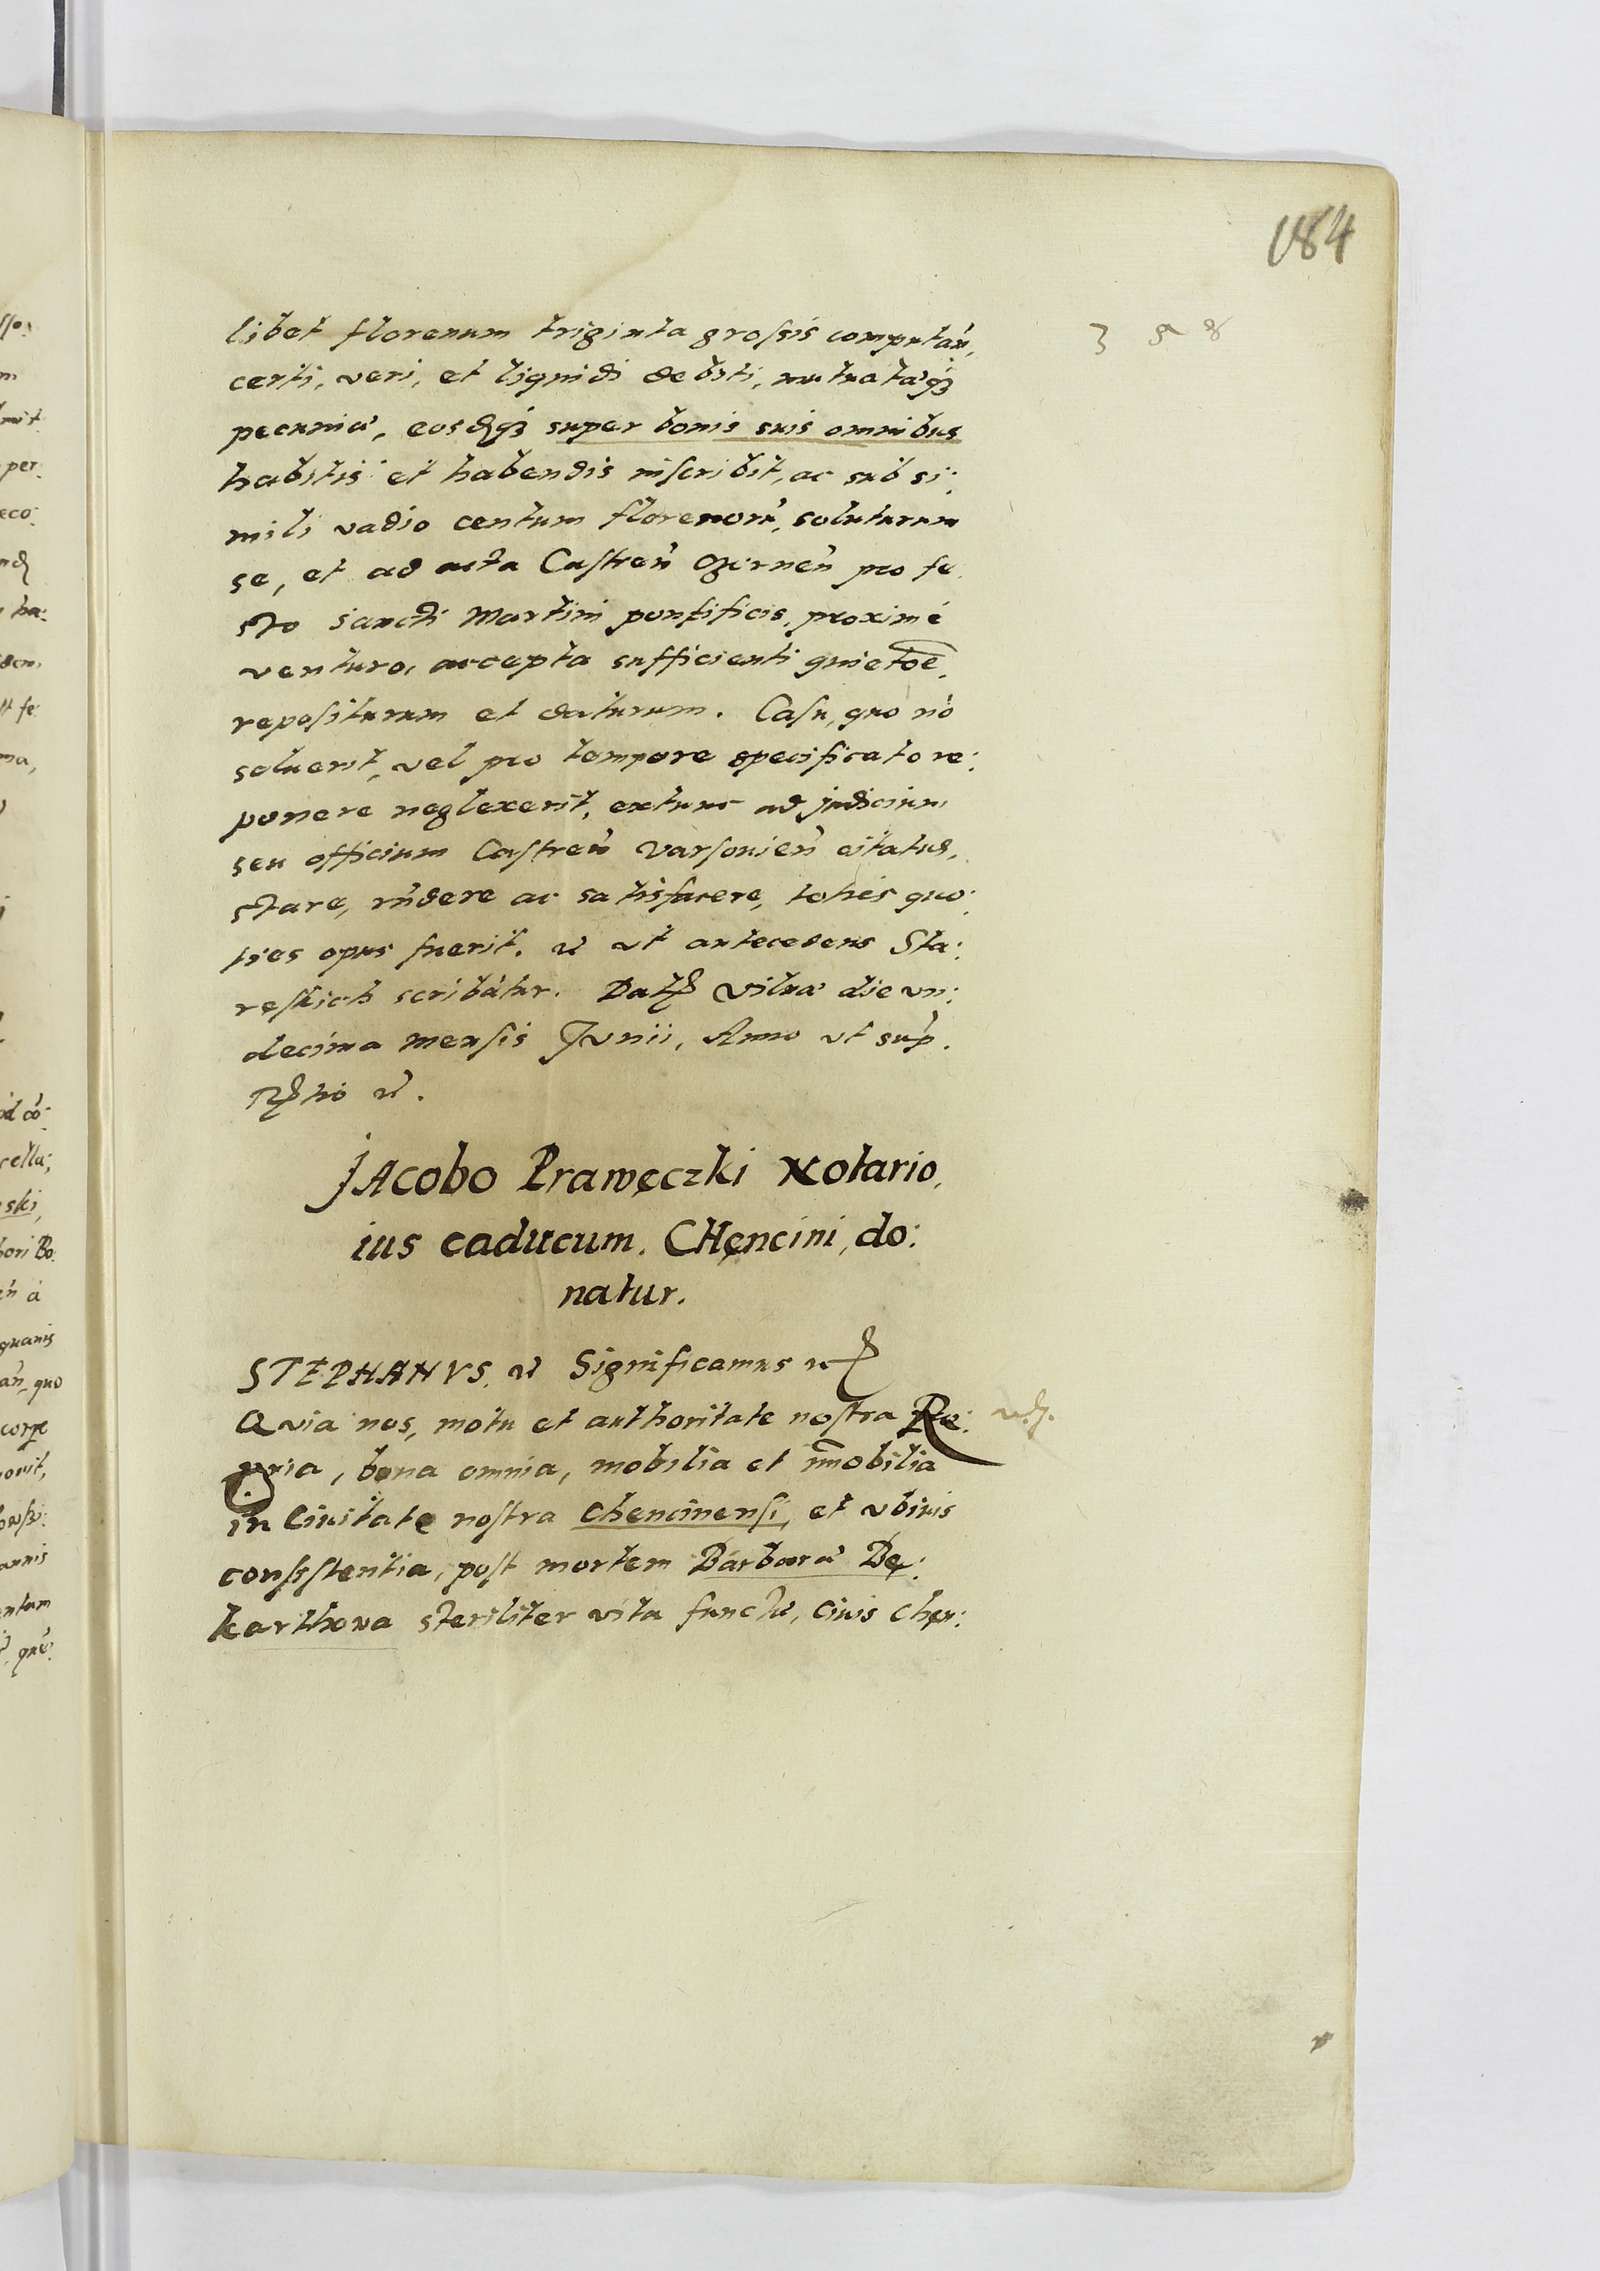 184
libet florenum triginta grossis computań,
certi, veri, et liquidi debiti, mutuatæqꝫ
pecuniæ, eosdqꝫ super bonis suis omnibus
habitis et habendis inscribit, ac sub si:
mili vadio centum florenorũ, soluturum
se, et ad acta Castreń Czirneń pro fe
sto sancti Martini pontificis, proximè
venturo, accepta sufficienti quietõe,
repositurum et daturum. Casu, quo nõ
soluerit, vel pro tempore specificato re:
ponere neglexerit, extunc ad judicium
seu officium Castreń Varsovień citatus,
stare, rñdere ac satisfacere, toties quo:
ties opus fuerit. ut antecedens Sta:
reskich scribãtur. Vilnæ die vn:
decima mensis Junii, Anno ut sup̃.
JAcobo Prawęczki Notario,
ius caducum, CHęncini, do:
natur.
STEPHANVS, Significamus
Qvia nos, motu et authoritate nostra Re:
gia, bona omnia, mobilia et im̃obilia
in Ciuitate nostra Chencinensi, et vbiuis
consistentia, post mortem Barbaræ Bę:
karthowa steriliter vita functæ, Ciuis Chęn: